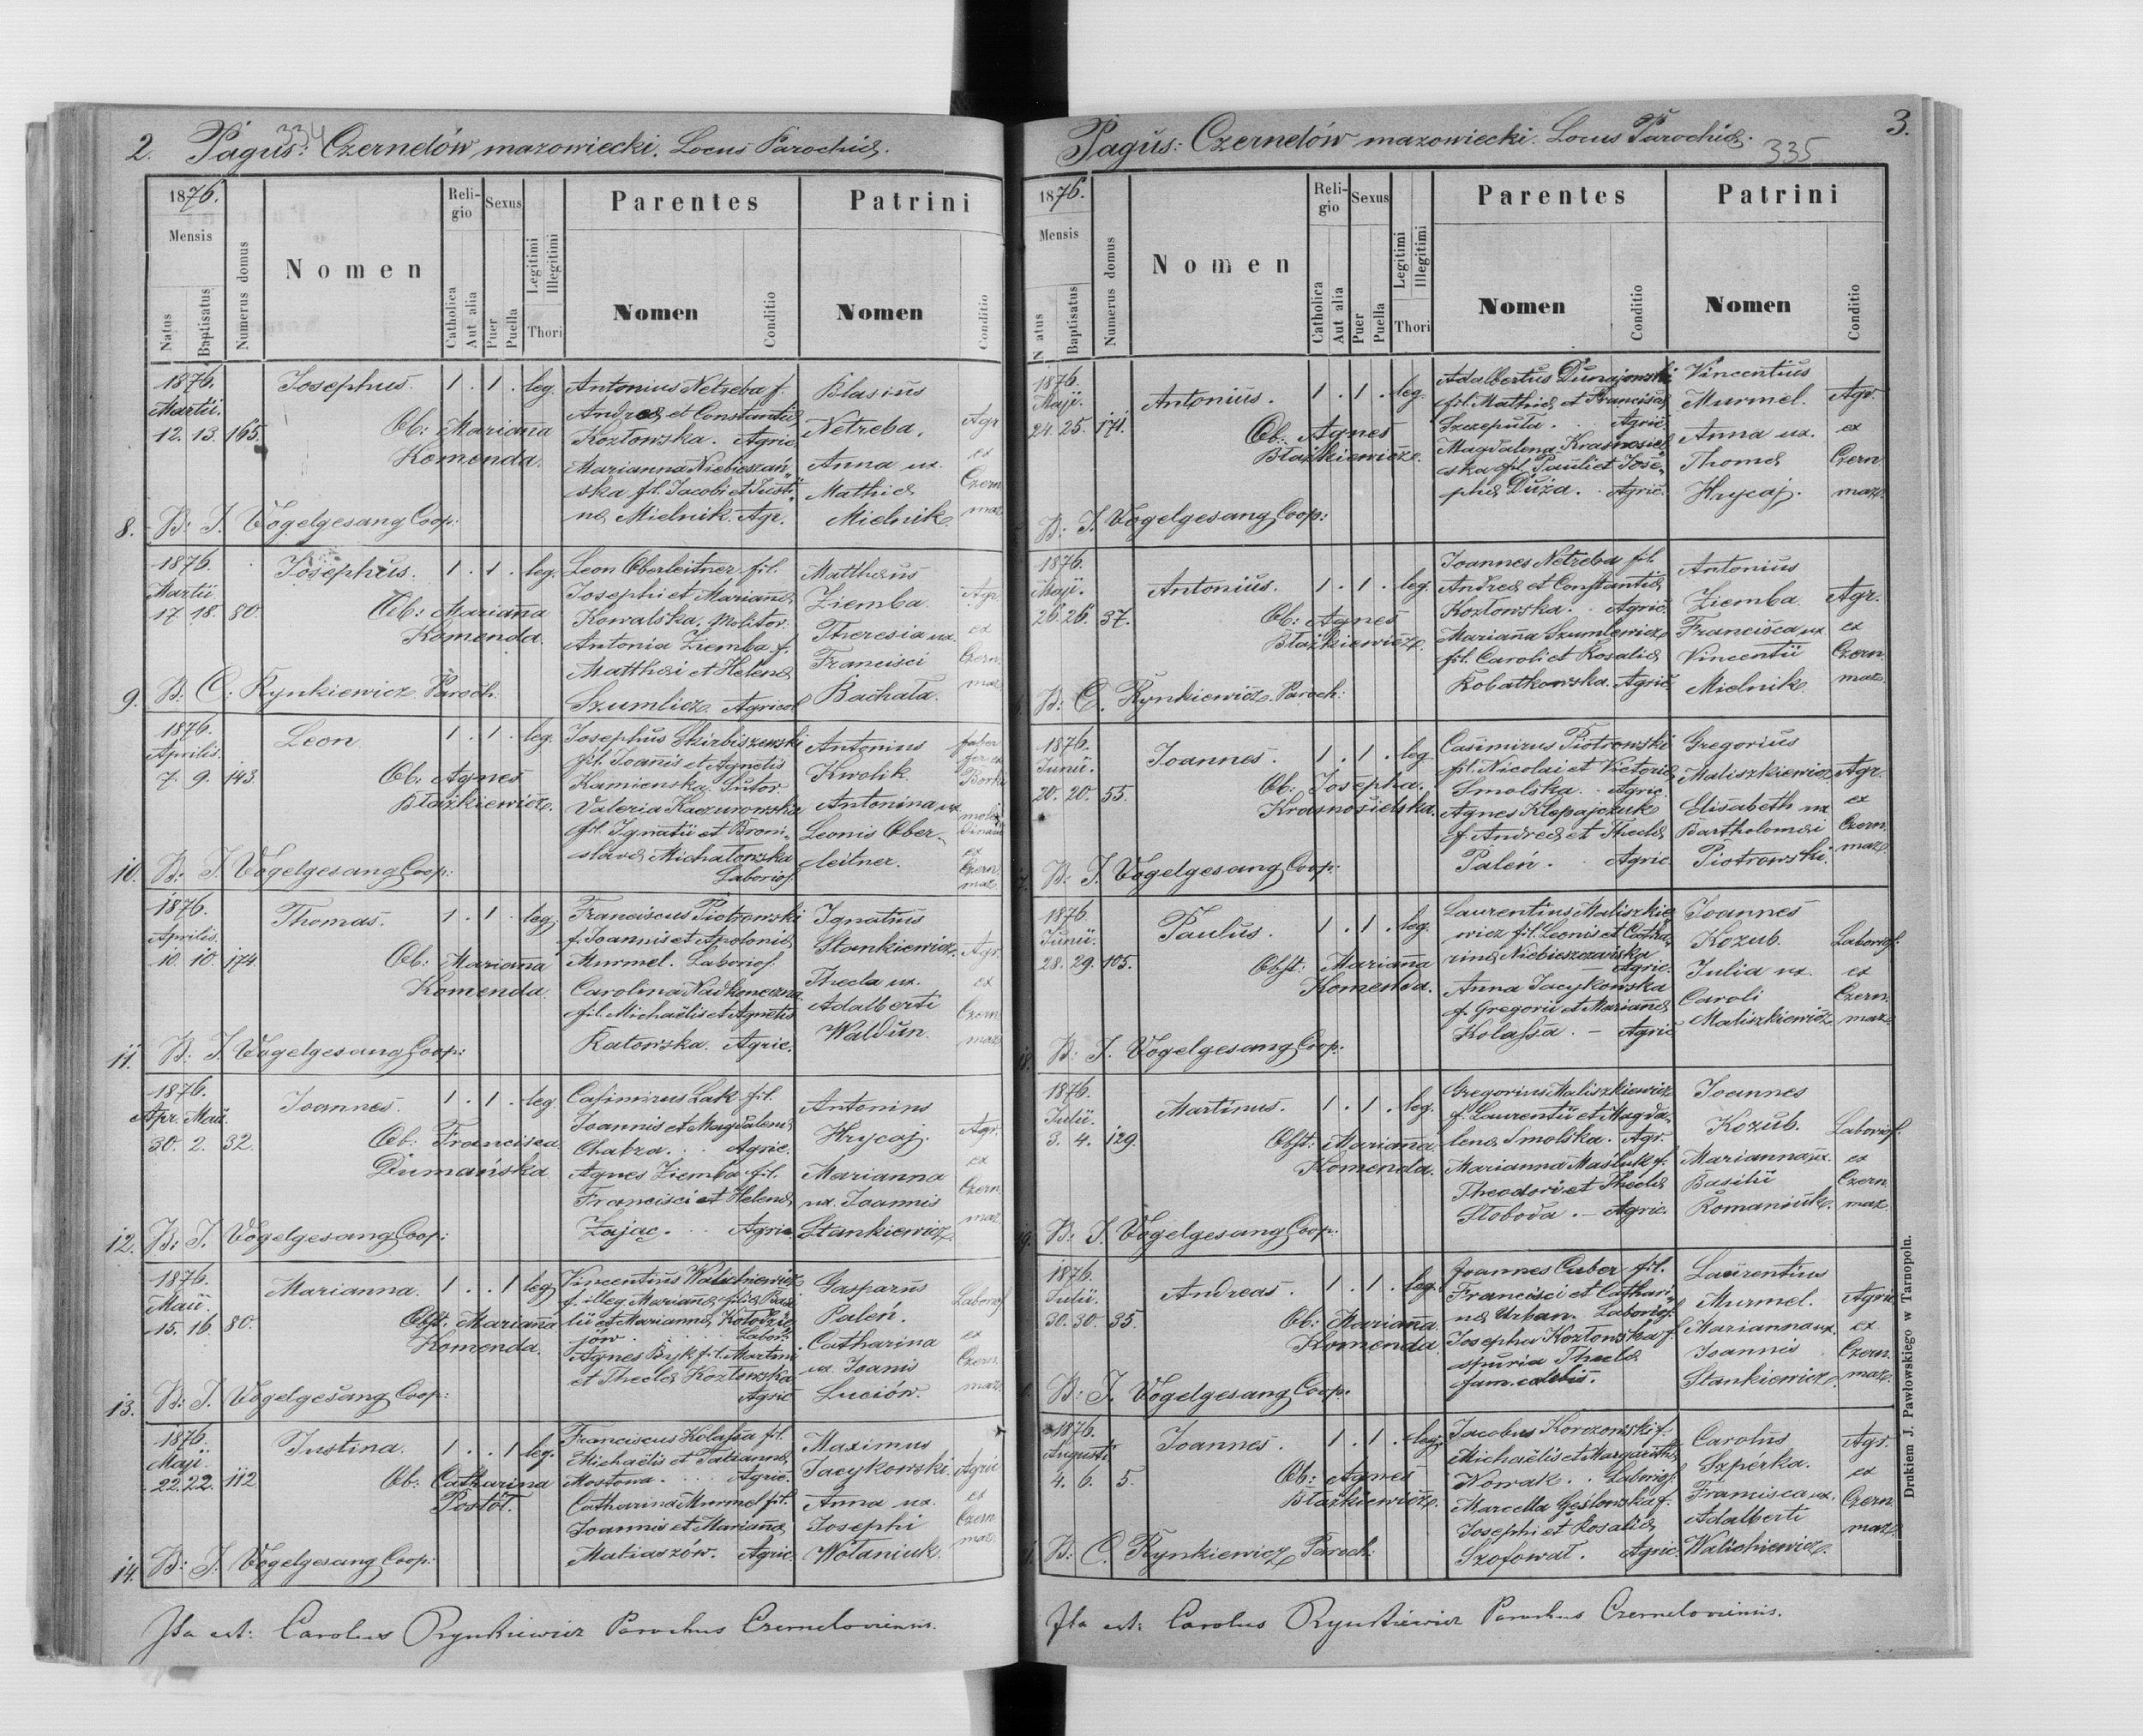 2. Pagus: Czernelów mazowiecki. Locus Parochiæ.
334
1876.
Mensis
Natus
Baptisatus
Numerus domus
Nomen
Religio
Catholica
Aut alia
Sexus
Puer
Puella
Legitimi
Illegitimi
Thori
Parentes
Nomen
Conditio
Patrini
Nomen
Conditio
1876.
Martii.
12. 13. 165.
Josephus. 1. 1. leg.
Ob: Mariana
Komenda.
Antonius Netreba f.
Andreæ et Constantiæ
Kozłowska. Agric.
Marianna Niebieszczań„
ska fil. Jacobi et Justi„
næ Mielnik. Agr.
Blasius
Netreba.
Anna ux.
Mathiæ
Mielnik.
Agr
ex
Czern.
maz.
8. B: J. Vogelgesang Coop:
1876.
Martii
17. 18. 80.
Josephus. 1. 1. leg.
Ob: Mariana
Komenda.
Leon Oberleitner fil.
Josephi et Marianæ
Kowalska, Molitor.
Antonia Ziemba f.
Matthæi et Helenæ
Szumlicz. Agricol
Matthæus
Ziemba.
Theresia ux.
Francisci
Bachata.
Agr.
ex
Czern.
maz.
9. B. C. Rynkiewicz Paroch.
1876.
Aprilis.
7. 9. 143.
Leon 1. 1. leg.
Ob: Agnes
Błażkiewicz.
Josephus Skirbiszewski
fil. Joanis et Agnetis
Kamienska. Sutor
Valeria Kaczurowska
fil. Ignatii et Broni„
slavæ Michałowska
Laborios.
Antonius
Kwolik.
Antonina ux.
Leonis Ober„
leitner.
faber
ex
Czern.
maz.
10. B: J. Vogelgesang Coop:
1876.
Aprilis.
10. 10. 174.
Thomas. 1. 1. leg.
Ob: Mariana
Komenda.
Franciscus Piotrowski
f. Joannis et Apoloniæ
Murmel. Laborios.
Carolina Nadkoneczna
fil. Michaëlis et Agnetis
Katowska. Agric.
Ignatius
Stankiewicz.
Thecla ux.
Adalberti
Waldun.
Agr.
ex
Czern.
maz.
11. B: J. Vogelgesang Coop:
1876.
Apr. Maii.
30. 2. 32.
Joannes. 1. 1. leg
Ob: Francisca
Dumańska.
Casimirus Łak fil.
Joannis et Magdalenæ
Chabza. Agric.
Agnes Ziemba fil.
Francisci et Helenæ
Zając. Agric.
Antonius
Hrycaj.
Marianna
ux. Joannis
Stankiewicz.
Agr.
ex
Czern.
maz.
12. B: J. Vogelgesang Coop:
1876.
Maii.
15. 16. 80.
Marianna. 1. 1 leg
Obst: Mariana
Komenda.
Vincentius Walichiewicz
f. illeg. Marianæ filiæ Basi
lii et Mariannæ Kołodzie
jów. Labor.
Agnes Byk fil. Martini
et Theclæ Kozłowska
Agric
Gasparus
Paleń.
Catharina
ux. Joanis
Luciów.
Laborios
ex
Czern.
maz.
13. B: J. Vogelgesang Coop:
1876.
Maji.
22. 22. 112
Justina. 1. 1 leg.
Ob: Catharina
Postół.
Franciscus Kolassa fil.
Michaëlis et Tatiannæ
Mostowa. Agric.
Catharina Murmel fil.
Joannis et Marianæ
Matiaszów. Agric.
Maximus
Jacykowski.
Anna ux.
Josephi
Wołaniuk.
Agric
ex
Czern
maz.
14. B: J. Vogelgesang Coop:
Ita est: Carolus Rynkiewicz Parochus Czerneloviensis.
Pagus: Czernelów mazowiecki. Locus Parochiæ.
335
3.
1876.
Mensis
Natus
Baptisatus
Numerus domus
Nomen
Religio
Catholica
Aut alia
Sexus
Puer
Puella
Legitimi
Illegitimi
Thori
Parentes
Nomen
Conditio
Patrini
Nomen
Conditio
1876.
Maji.
24. 25. 171.
Antonius. 1. 1. leg.
Ob: Agnes
Błażkiewicz.
Adalbertus Dunajowski
fil. Mathiæ et Franciscæ
Szczeputa. Agric.
Magdalena Krasnosiel
ska fil. Pauli et Jose„
phæ Duża. Agric.
Vincentius
Murmel.
Anna ux.
Thomæ
Hrycaj.
Agr.
ex
Czern.
maz.
B: J. Vogelgesang Coop:
1876.
Maji.
26. 26. 37.
Antonius. 1. 1. leg.
Ob: Agnes
Błażkiewicz.
Joannes Netreba fil.
Andreæ et Constantiæ
Kozłowska. Agric.
Mariana Szumlewicz
fil. Caroli et Rosaliæ
Kobatkowska. Agric.
Antonius
Ziemba.
Francisca ux
Vincentii
Mielnik.
Agr.
ex
Czern.
maz.
B: C. Rynkiewicz. Paroch:
1876.
Junii.
20. 20. 55.
Joannes. 1. 1. leg
Ob: Josepha.
Krasnosielska.
Casimirus Piotrowski
fil. Nicolai et Victoriæ
Smolska. Agric.
Agnes Klepajczuk
f. Andreæ et Theclæ
Paleń. Agric
Gregorius
Maliszkiewicz
Elisabeth ux
Bartholomæi
Piotrowski.
Agr.
ex
Czern.
maz.
7. B: J. Vogelgesang Coop:
1876.
Junii.
28. 29. 105.
Paulus. 1. 1. leg.
Obst: Mariana
Komenda.
Laurentius Maliszkie
wicz fil. Leonis et Catha„
rinæ Niebieszczańska
Agric.
Anna Jacykowska
f. Gregorii et Marianæ
Kolassa. – Agric
Joannes
Kozub.
Julia ux.
Caroli
Maliszkiewicz
Laborios.
ex
Czern.
maz.
18. B: J. Vogelgesang Coop:
1876.
Julii.
3. 4. 129.
Martinus. 1. 1. leg.
Obst: Mariana
Komenda.
Gregorius Maliszkiewicz
f. Laurentii et Magda„
lenæ Smolska. Agr.
Marianna Maśluk f.
Theodori et Theclæ
Słoboda. – Agric.
Joannes
Kozub.
Marianna ux.
Basilii
Romaniuk.
Laborios.
ex
Czern.
maz.
19. B: J. Vogelgesang Coop:
1876.
Julii.
30. 30. 35.
Andreas. 1. 1. leg.
Ob: Mariana
Komenda.
Joannes Cuber fil.
Francisci et Cathari„
næ Urban. Laborios.
Josepha Kozłowska f.
spuria Theclæ
fam. cælibis.
Laurentius
Murmel.
Marianna ux.
Joannis
Stankiewicz.
Agric
ex
Czern.
maz.
B: J. Vogelgesang Coop:
1876.
Augusti
4. 6. 5.
Joannes. 1. 1. leg.
Ob: Agnes
Błażkiewicz.
Jacobus Korzowski f.
Michaëlis et Margarithæ
Nowak. Laborios.
Marcella Gęślowska f.
Josephi et Rosaliæ
Szofował. Agric.
Carolus
Szperka.
Francisca ux.
Adalberti
Walichiewicz.
Agr.
ex
Czern.
maz.
B: C. Rynkiewicz Paroch:
Ita est: Carolus Rynkiewicz Parochus Czerneloviensis.
Drukiem J. Pawłowskiego w Tarnopolu.